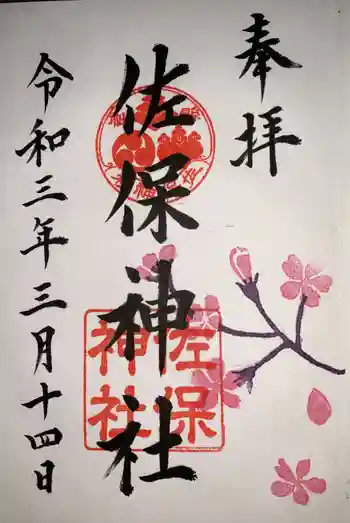 奉拝
佐保神社
佐保
神社
令和三年三月十四日